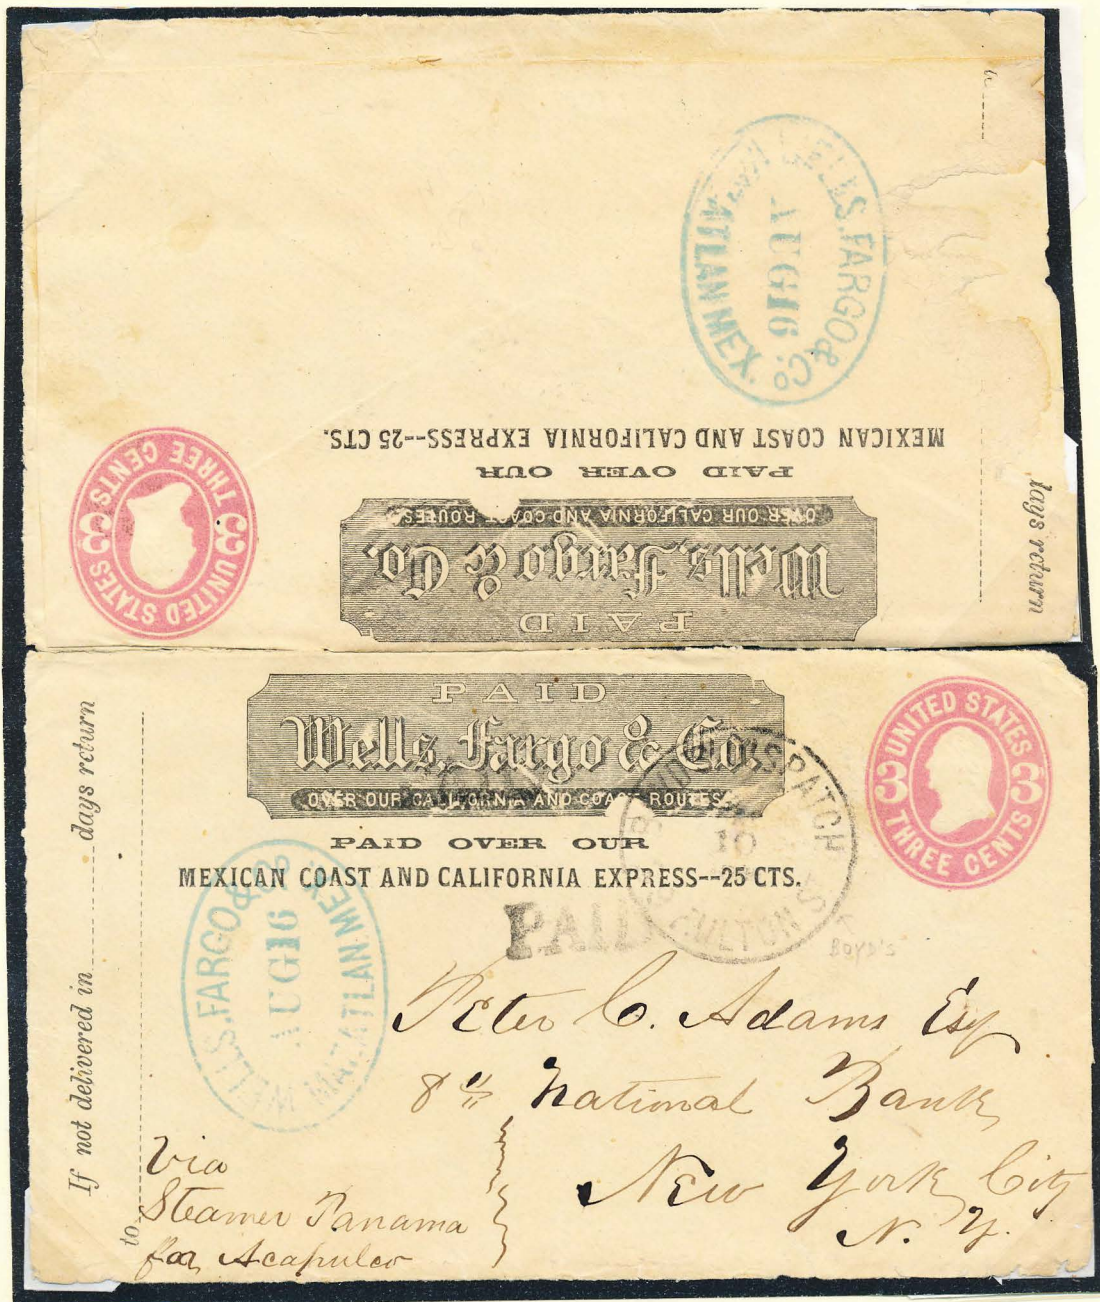 WELLS, FARGO & Co
AUG 16
MAZATLAN MEX.
MEXICAN COAST AND CALIFORNIA EXPRESS--25 CTS.
PAID OVER OUR
OVER OUR CALIFORNIA AND COAST ROUTES
Wells, Fargo & Co.
PAID
UNITED STATES
3 3
THREE CENTS
days return
PAID
Wells, Fargo & Co.
OVER OUR CALIFORNIA AND COAST ROUTES
PAID OVER OUR
MEXICAN COAST AND CALIFORNIA EXPRESS--25 CTS.
UNITED STATES
3 3
THREE CENTS
DISPATCH
10
FULTON ST
BOYD'S
PAID
WELLS, FARGO & Co
AUG 16
MAZATLAN. MEX.
If not delivered in days return
to
Peter C. Adams Esq
8th National Bank
New York City
N. Y.
Via
Steamer Panama
for Acapulco